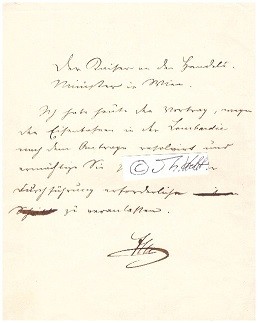 Der Kaiser an den Handels-
Minister in Wien.
Ich habe heute den Vortrag, wegen
der Eisenbahnen in der Lombardie
nach dem Antrage resolvirt und
ermächtige Sie
Durchführung erforderliche
zu veranlassen.